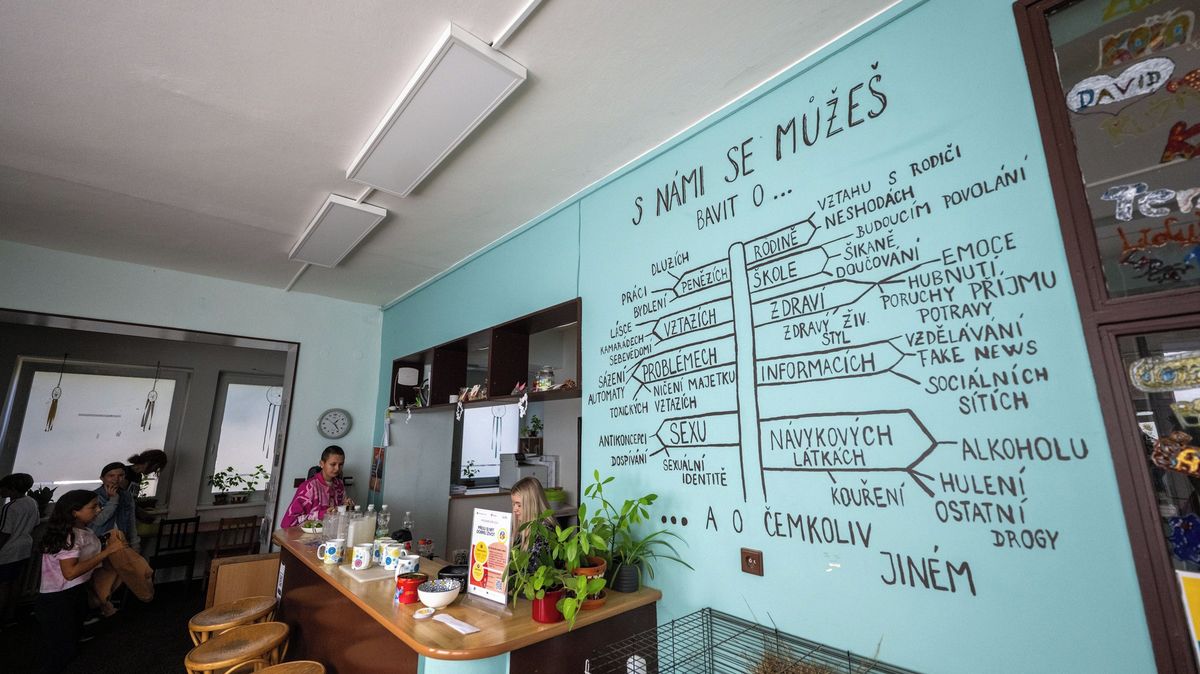 S NÁMI SE MŮŽEŠ
BAVIT O ...
DLUZÍCH
PRÁCI
BYDLENÍ
PENĚZÍCH
LÁSCE
KAMARÁDECH
SEBEVĚDOMÍ
VZTAZÍCH
SÁZENÍ
AUTOMATY
PROBLÉMECH
NIČENÍ MAJETKU
TOXICKÝCH VZTAZÍCH
ANTIKONCEPCI
DOSPÍVÁNÍ
SEXU
SEXUALNÍ
IDENTITĚ
RODINĚ
VZTAHU S RODIČI
NESHODÁCH
ŠKOLE
BUDOUCÍM POVOLÁNÍ
ŠIKANĚ
DOUČOVÁNÍ
ZDRAVÍ
EMOCE
HUBNUTÍ
PORUCHY PŘÍJMU
POTRAVY
ZDRAVÝ ŽIV.
STYL
INFORMACÍCH
VZDĚLÁVÁNÍ
FAKE NEWS
SOCIÁLNÍCH
SÍTÍCH
NÁVYKOVÝCH
LÁTKÁCH
ALKOHOLU
HULENÍ
KOUŘENÍ
OSTATNÍ
DROGY
... A O ČEMKOLIV
JINÉM
DAVID